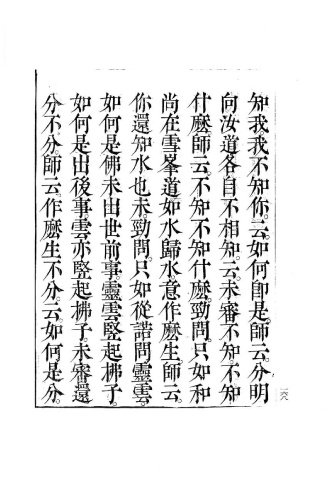 知我我不知你云如何即是師云分明
向汝道各自不相知云未審不知不知
什麼師云不知不知什麼勁問只如和
尚在雪峯道如水歸水意作麼生師云
你還知水也未勁問只如從諮問靈雲
如何是佛未出世前事靈雲竪起拂子
如何是出後事雲亦竪起拂子未審還
分不分師云作麼生不分云如何是分
一六八